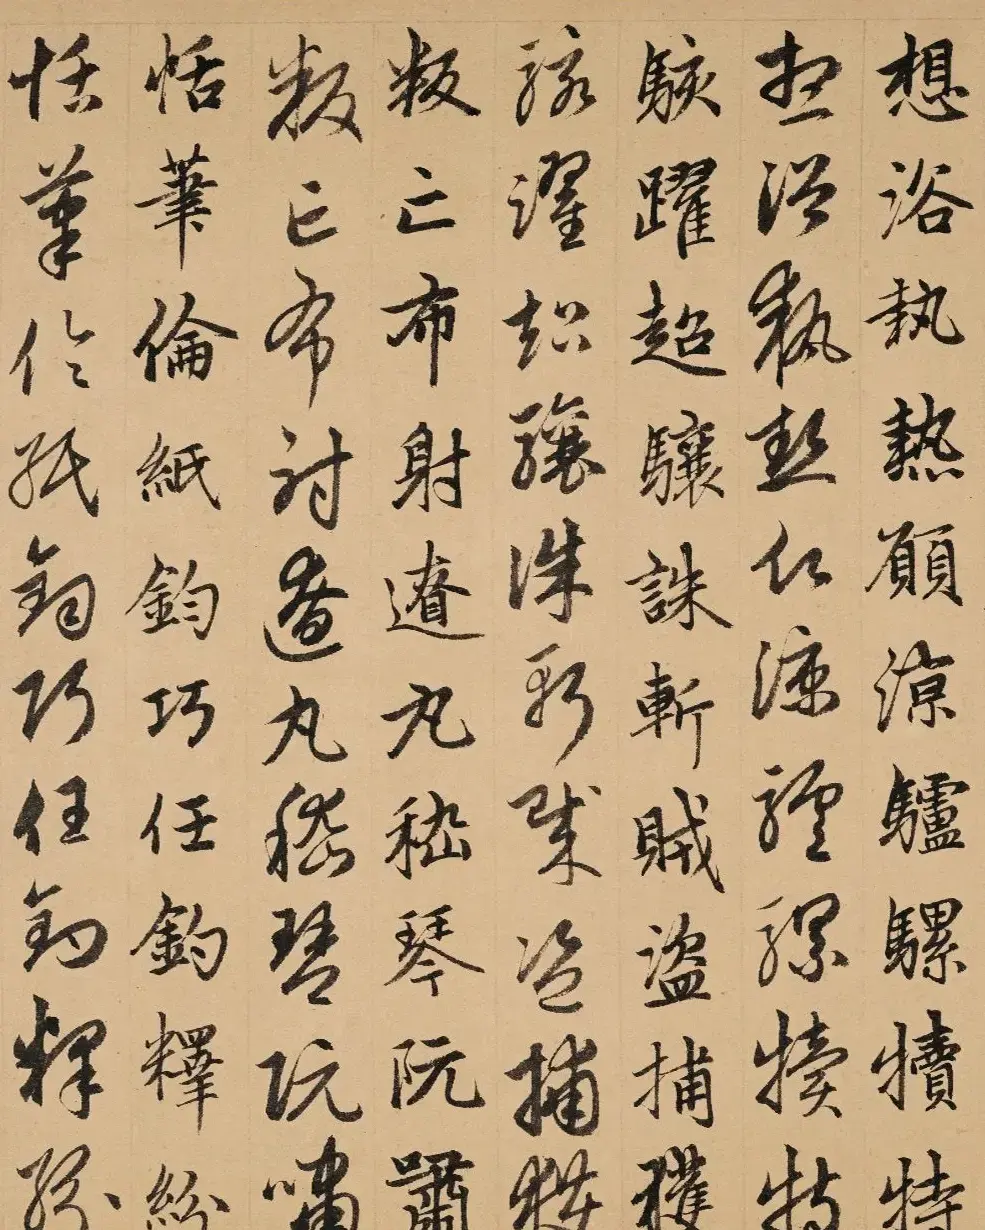 想浴執熱願涼驢騾犢特
想浴執熱願涼驢騾犢特
駭躍超驤誅斬賊盜捕獲
駭躍超驤誅斬賊盜捕獲
叛亡布射遼丸嵇琴阮嘯
叛亡布射遼丸嵇琴阮嘯
恬筆倫紙鈞巧任釣釋紛
恬筆倫紙鈞巧任釣釋紛